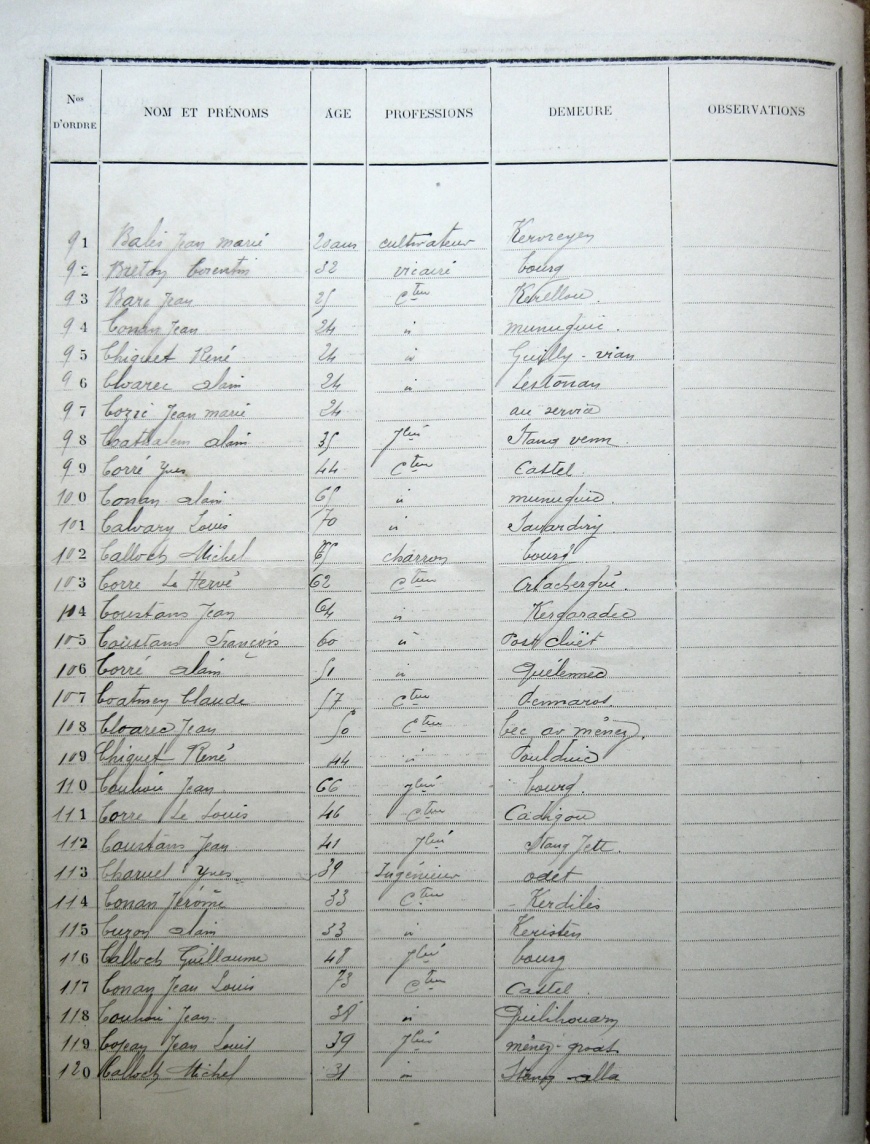 Nos D'ORDRE NOM ET PRÉNOMS ÂGE PROFESSIONS DEMEURE OBSERVATIONS
91 Balès Jean marie 20 ans cultivateur Kervreyen
92 Breton Corentin 32 vicaire bourg
93 Baré Jean 25 Cteur Kerellou
94 Conan Jean 24 " munuguic
95 Chiquet René 24 " Guilly-vian
96 Cloarec alain 24 " Lestonan
97 Cozic Jean marie 24 au service
98 Cathalem alain 35 Jlier Stang venn
99 Corré Yves 44 Cteur Castel
100 Conan alain 65 " munuguic
101 Calvary Louis 70 "
102 Calloch Michel 65 charron bourg
103 Corre Le Hervé 62 Cteur
104 Coustans Jean 64 " Kergaradec
105 Coustans François 60 "
106 Corré alain 51 " Quélennec
107 Coatmen Claude 57 Cteur Pennaros
108 Cloarec Jean 50 Cteur bec ar ménez
109 Chiquet René 44 "
110 Couhoic Jean 66 Jlier bourg
111 Corre Le Louis 46 Cteur Cadigou
112 Coustans Jean 41 Jlier Stang
113 Charuel Yves 39 Ingénieur odet
114 Conan Jérôme 33 Cteur Kerdilès
115 Cuzon alain 33 " Keristin
116 Calloch Guillaume 48 Jlier bourg
117 Conan Jean Louis 73 Cteur Castel
118 Couhoic Jean 38 " Quilihouarn
119 Cojean Jean Louis 39 Jlier ménez-groas
120 Calloch Michel 31 " Stang